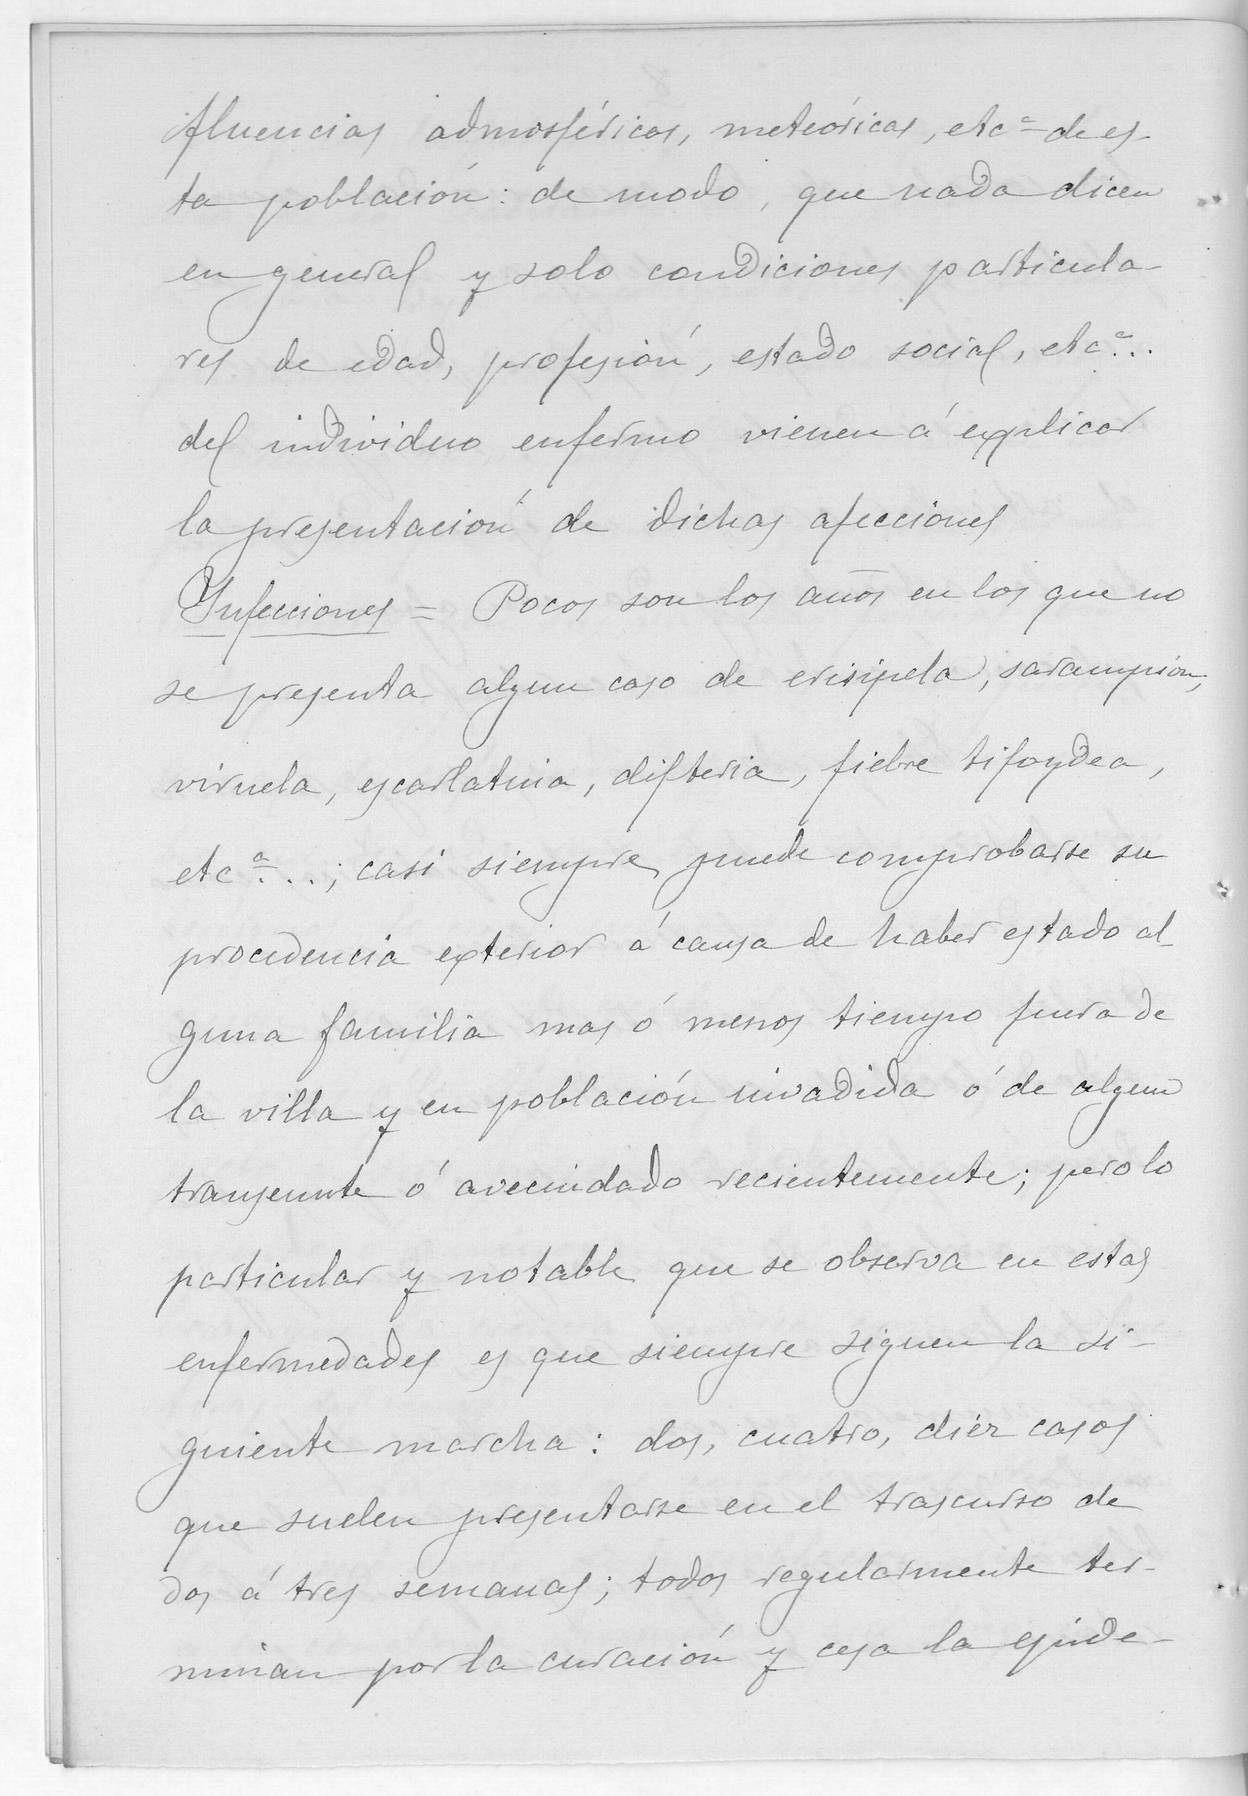 fluencias admosféricas, meteóricas, etcª de es-
ta población: de modo, que nada dicen
en general y solo condiciones particula-
res de edad, profesión, estado social, etcª...
del individuo enfermo vienen á explicar
la presentación de dichas afecciones
Ynfecciones = Pocos son los años en los que no
se presenta algun caso de erisipela, sarampion,
viruela, escarlatina, difteria, fiebre tifoydea,
etcª...; casi siempre puede comprobarse su
procedencia exterior á causa de haber estado al-
guna familia mas ó menos tiempo fuera de
la villa y en población invadida ó de algun
transeunte ó avecindado recientemente; pero lo
particular y notable que se observa en estas
enfermedades es que siempre siguen la si-
guiente marcha: dos, cuatro, diez casos
que suelen presentarse en el trascurso de
dos á tres semanas; todos regularmente ter-
minan por la curación y cesa la epide-